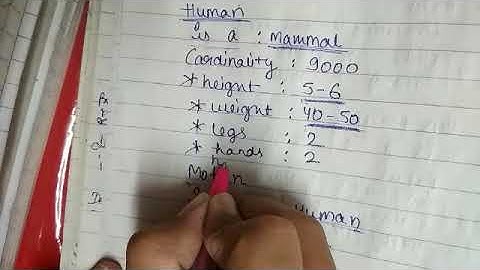 Human
is a : Mammal
Cardinality : 9000
* height : 5-6
* weight : 40-50
* legs : 2
* hands : 2
Human